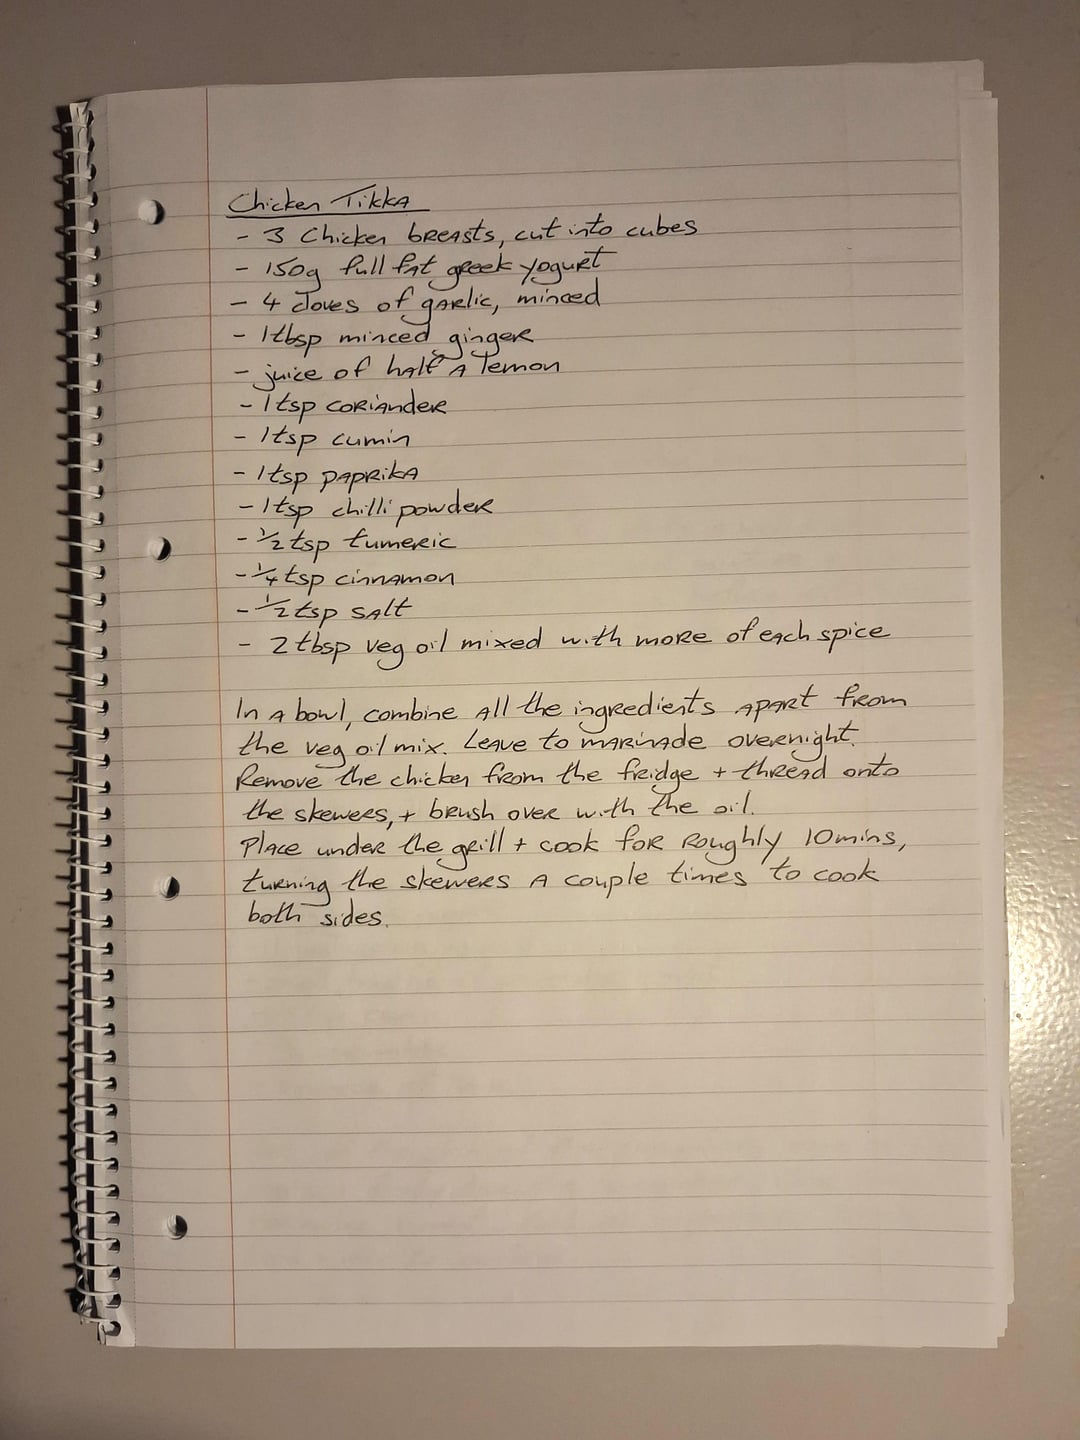 Chicken Tikka
- 3 Chicken breasts, cut into cubes
- 150g full fat greek yogurt
- 4 cloves of garlic, minced
- 1tbsp minced ginger
- juice of half a lemon
- 1tsp coriander
- 1tsp cumin
- 1tsp paprika
- 1tsp chilli powder
- ½tsp tumeric
- ¼tsp cinnamon
- ½tsp salt
- 2tbsp veg oil mixed with more of each spice
In a bowl, combine all the ingredients apart from
the veg oil mix. Leave to marinade overnight.
Remove the chicken from the fridge + thread onto
the skewers, + brush over with the oil.
Place under the grill + cook for roughly 10mins,
turning the skewers a couple times to cook
both sides.